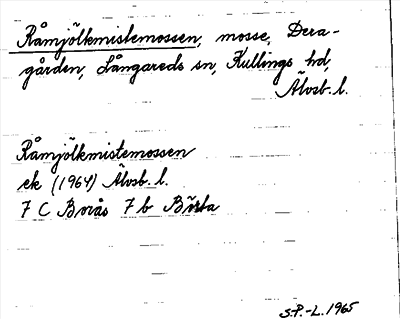 Råmjölkmistemossen, mosse, Dera-
gården, Långareds sn, Kullings hd,
Älvsb. l.
Råmjölkmistemossen
ek (1964) Älvsb. l.
7 C Borås 7 b Börta
S.P.-L. 1965